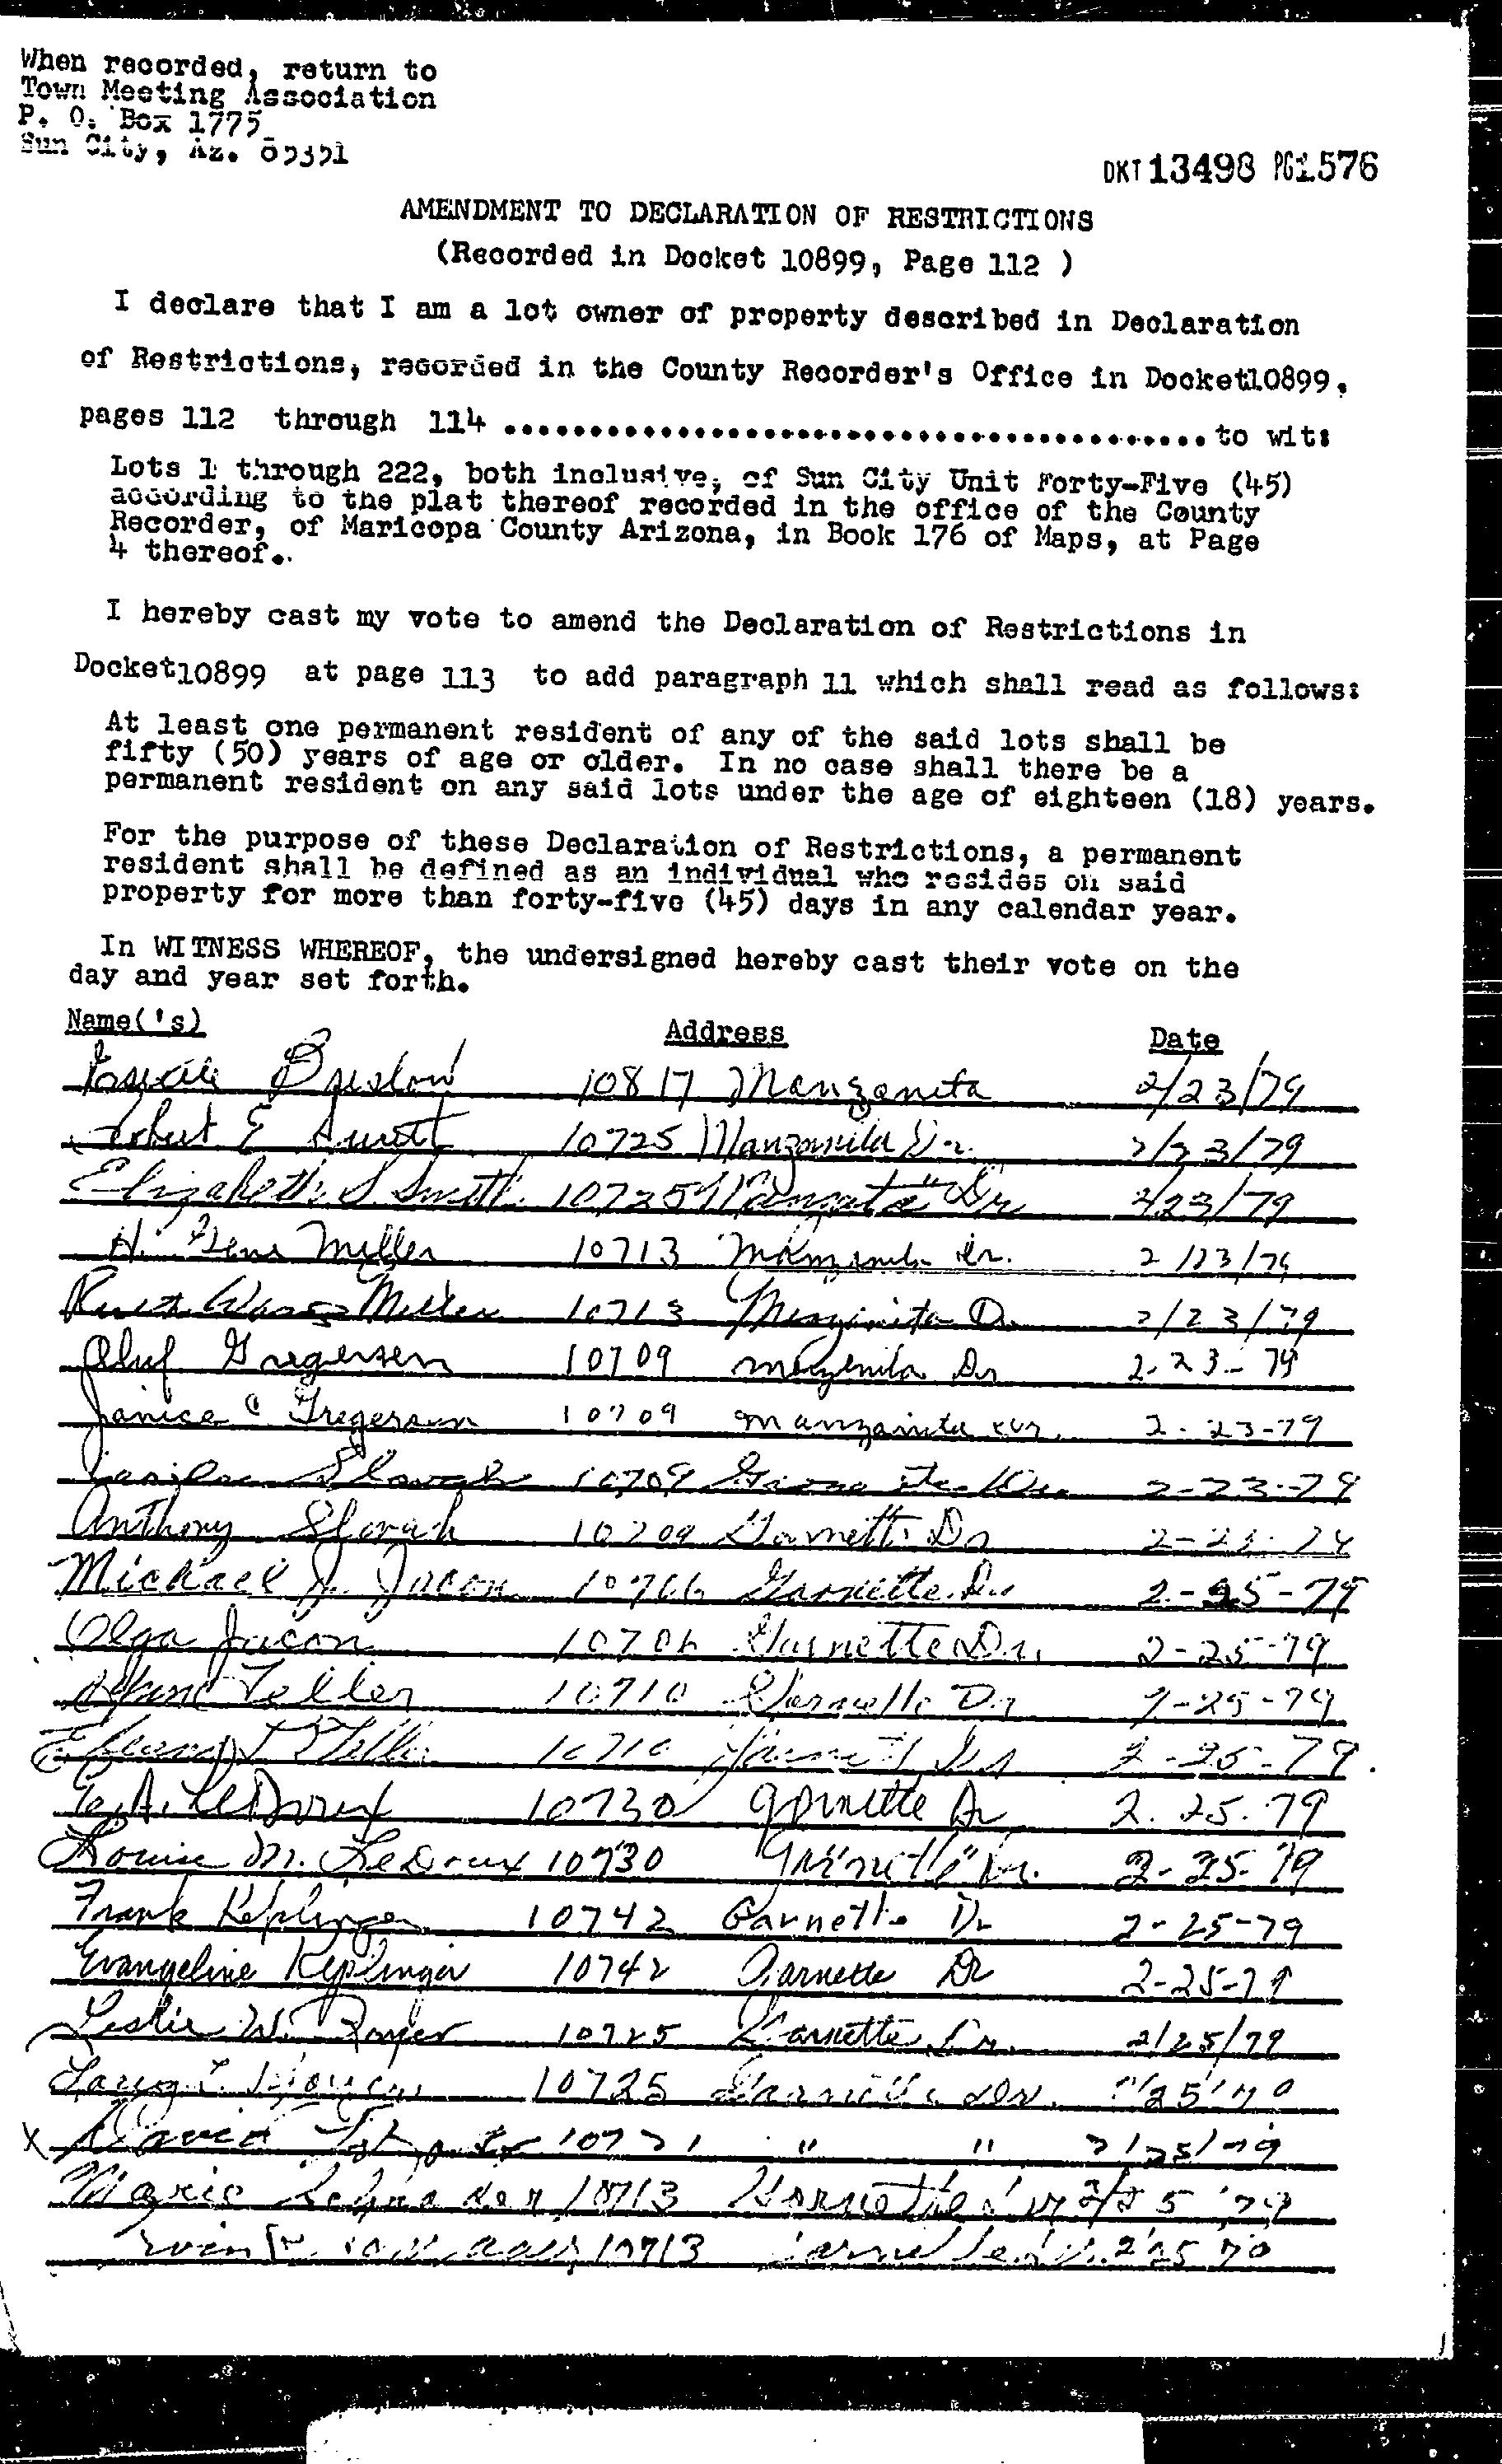 When recorded, return to
Town Meeting Association
P. O. Box 1775
Sun City, Az. 85351
DKT 13498 PG 1576
AMENDMENT TO DECLARATION OF RESTRICTIONS
(Recorded in Docket 10899, Page 112 )
I declare that I am a lot owner of property described in Declaration
of Restrictions, recorded in the County Recorder's Office in Docket10899,
pages 112 through 114 ........................................to wit:
Lots 1 through 222, both inclusive, of Sun City Unit Forty-Five (45)
according to the plat thereof recorded in the office of the County
Recorder, of Maricopa County Arizona, in Book 176 of Maps, at Page
4 thereof..
I hereby cast my vote to amend the Declaration of Restrictions in
Docket10899 at page 113 to add paragraph 11 which shall read as follows:
At least one permanent resident of any of the said lots shall be
fifty (50) years of age or older. In no case shall there be a
permanent resident on any said lots under the age of eighteen (18) years.
For the purpose of these Declaration of Restrictions, a permanent
resident shall be defined as an individual who resides on said
property for more than forty-five (45) days in any calendar year.
In WITNESS WHEREOF, the undersigned hereby cast their vote on the
day and year set forth.
Name('s) Address Date
10817 Manzanita 2/23/79
Robert E 10725 Manzanita Dr. 2/23/79
Elizabeth S. Smith 10725 Dr 2/23/79
H. Miller 10713 Manzanita Dr. 2/23/79
Miller 10713 Manzanita Dr 2/23/79
Oluf Gregersen 10709 Manzanita Dr 2-23-79
Janice C Gregersen 10709 Manzanita 2-23-79
Slovak 10709 2-23-79
Anthony Slovak 10709 Garnette Dr 2-23-79
Michael J. Jacon 10706 Garnette Dr 2-25-79
Olga Jacon 10706 Garnette Dr. 2-25-79
Feller 10710 Garnette Dr 2-25-79
10710 2-25-79.
LeDoux 10730 Garnette Dr 2.25.79
Louise M. LeDoux 10730 Garnette Dr. 2-25-79
Frank Keplinger 10742 Garnette Dr 2-25-79
Evangeline Keplinger 10742 Garnette Dr 2-25-79
Leslie W. 10725 Garnette Dr. 2/25/79
10725 Garnette Dr. 2/25/79
x David 10721 " " 2/25/79
Marie Schrader 10713 Garnette Dr 2/25 79
10713 Garnette Dr. 2 25 79